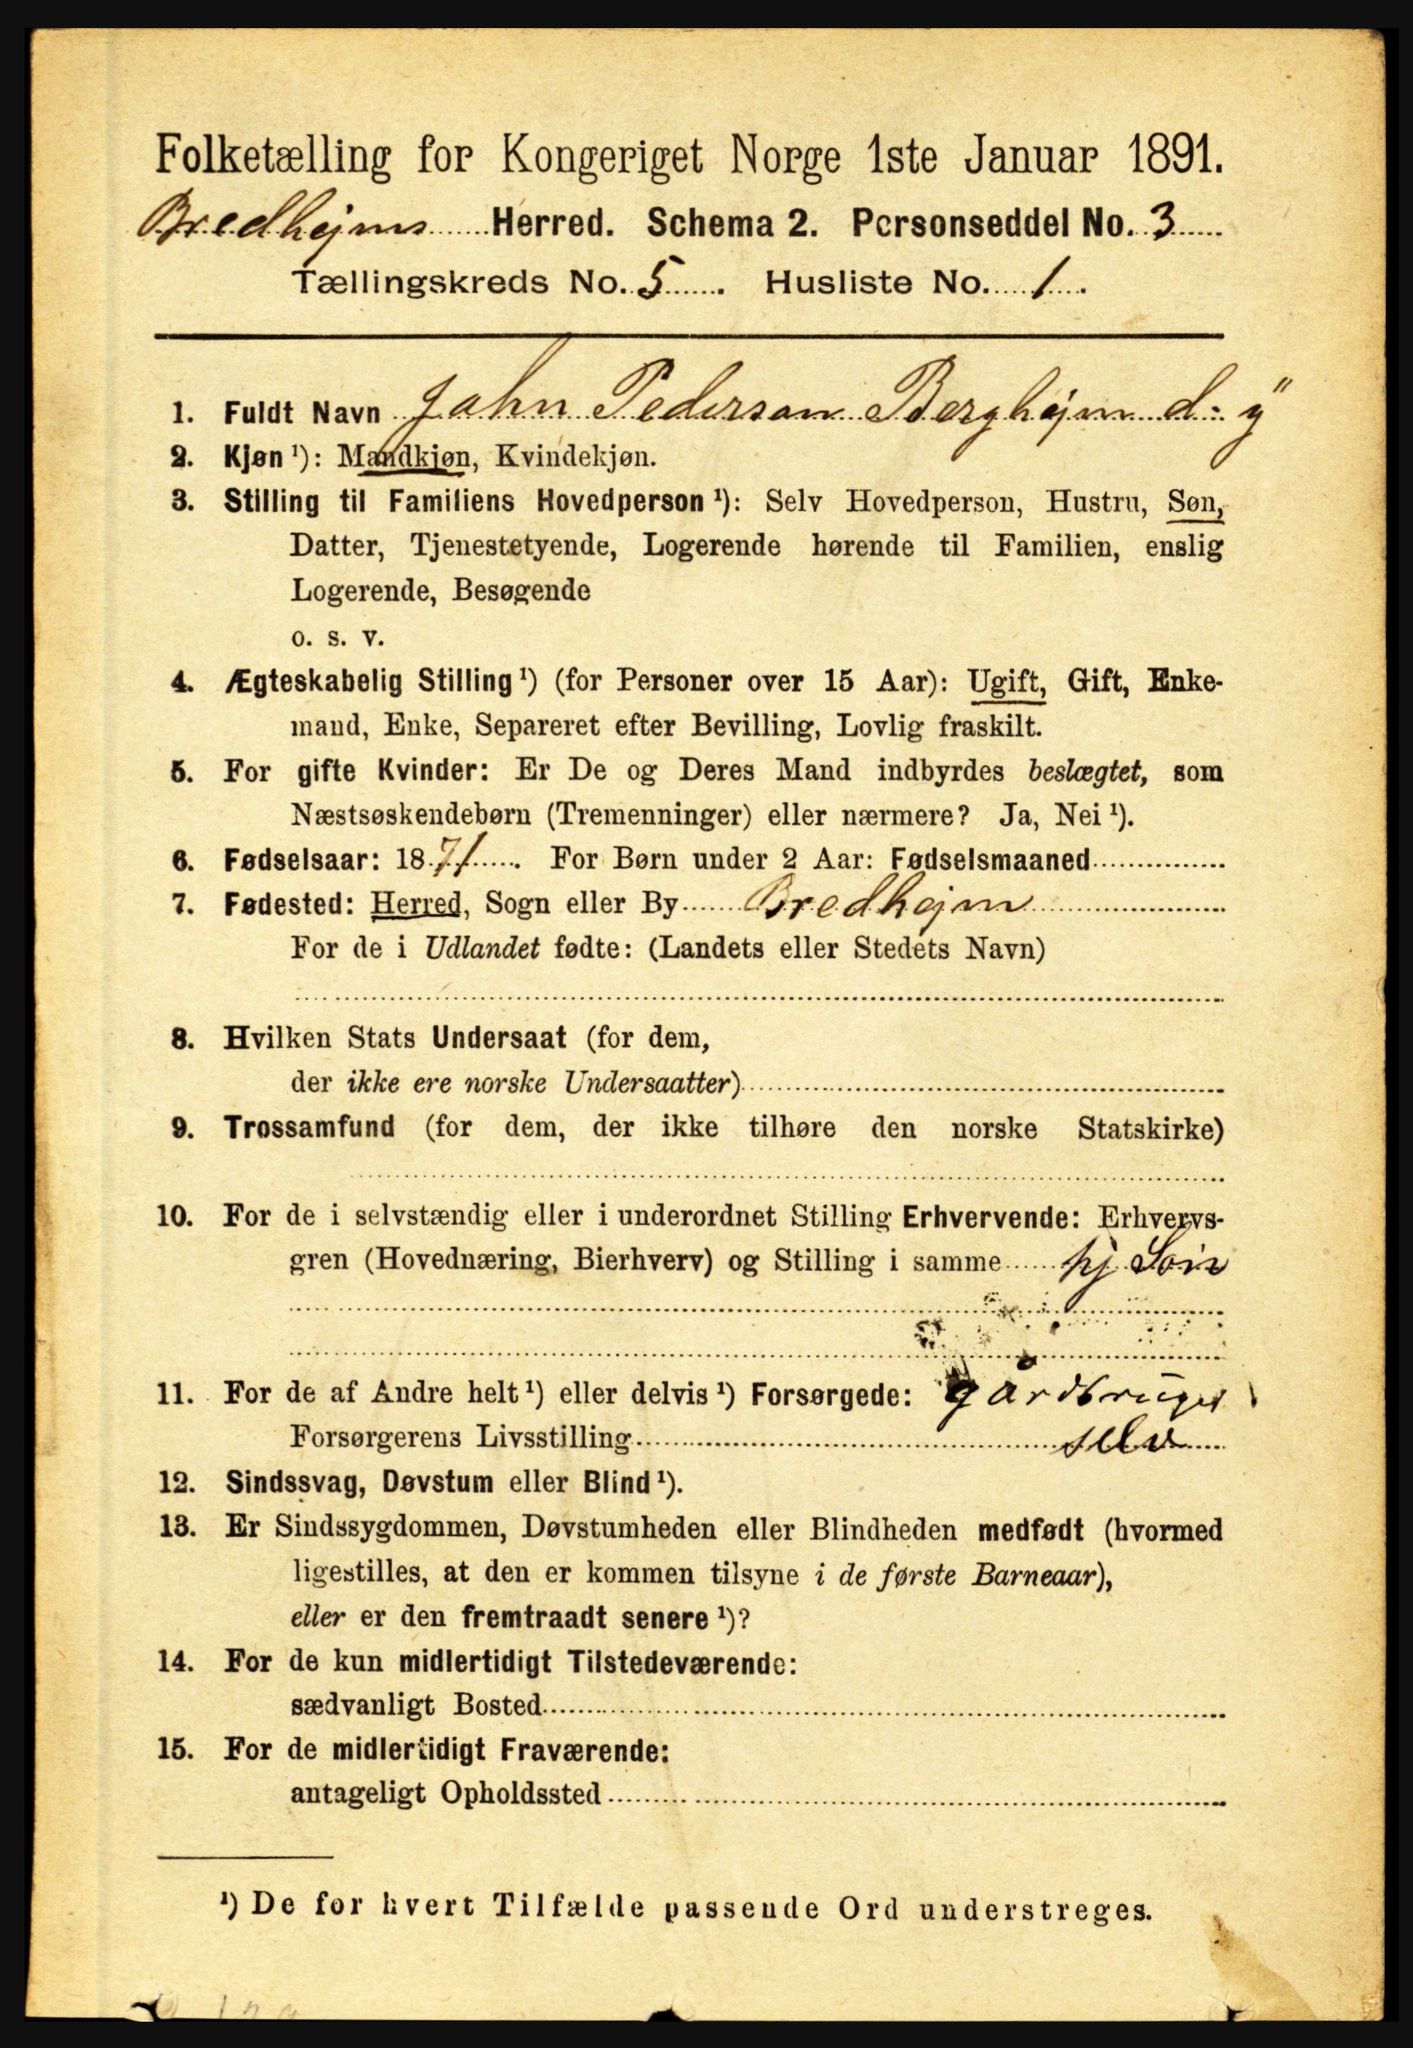 Folketælling for Kongeriget Norge 1ste Januar 1891.
Bredhejms Herred. Schema 2. Personseddel No. 3
Tællingskreds No. 5. Husliste No. 1.
1. Fuldt Navn John Pederson Berghejm d. y"
2. Kjøn ¹): Mandkjøn, Kvindekjøn.
3. Stilling til Familiens Hovedperson ¹): Selv Hovedperson, Hustru, Søn,
Datter, Tjenestetyende, Logerende hørende til Familien, enslig
Logerende, Besøgende
o. s. v.
4. Ægteskabelig Stilling ¹) (for Personer over 15 Aar): Ugift, Gift, Enke-
mand, Enke, Separeret efter Bevilling, Lovlig fraskilt.
5. For gifte Kvinder: Er De og Deres Mand indbyrdes beslægtet, som
Næstsøskendebørn (Tremenninger) eller nærmere? Ja, Nei ¹).
6. Fødselsaar: 1871. For Børn under 2 Aar: Fødselsmaaned
7. Fødested: Herred, Sogn eller By Bredhejm
For de i Udlandet fødte: (Landets eller Stedets Navn)
8. Hvilken Stats Undersaat (for dem,
der ikke ere norske Undersaatter)
9. Trossamfund (for dem, der ikke tilhøre den norske Statskirke)
10. For de i selvstændig eller i underordnet Stilling Erhvervende: Erhvervs-
gren (Hovednæring, Bierhverv) og Stilling i samme hj Søn
11. For de af Andre helt ¹) eller delvis ¹) Forsørgede: gårdbruger
Forsørgerens Livsstilling selv
12. Sindssvag, Døvstum eller Blind ¹).
13. Er Sindssygdommen, Døvstumheden eller Blindheden medfødt (hvormed
ligestilles, at den er kommen tilsyne i de første Barneaar),
eller er den fremtraadt senere ¹)?
14. For de kun midlertidigt Tilstedeværende:
sædvanligt Bosted
15. For de midlertidigt Fraværende:
antageligt Opholdssted
¹) De for hvert Tilfælde passende Ord understreges.